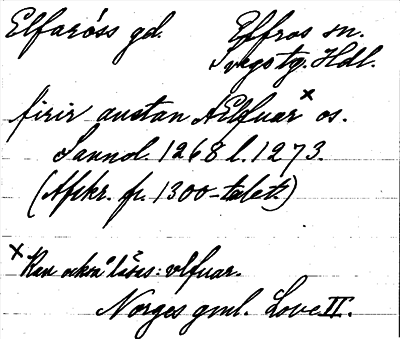 Elfaróss gd. Elfros sn.
Svegs tg. Hdl.
firir austan AElfuar x os.
Sannd. 1268 l. 1273.
(Afskr. fr. 1300-talet.)
x Kan också läses: vlfuar.
Norges gml. Love II.